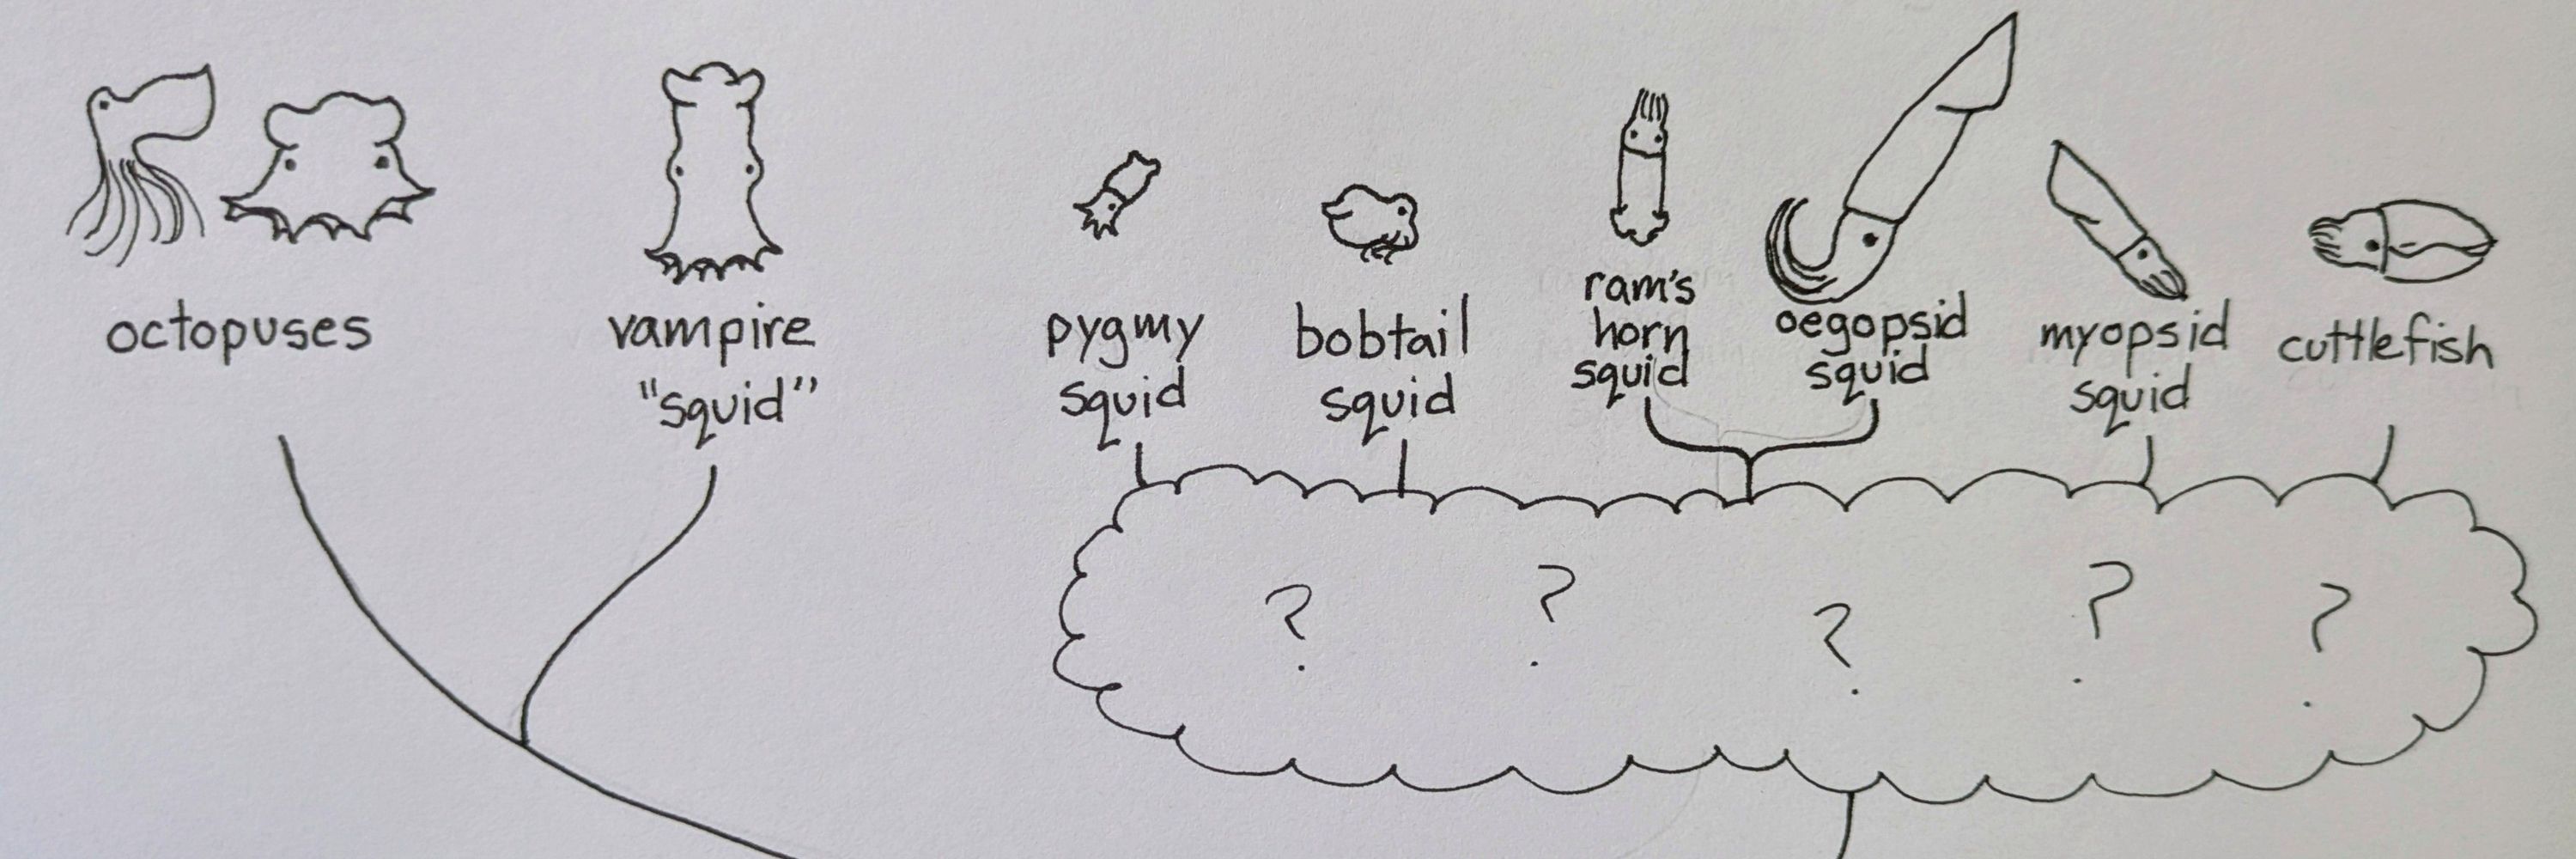 octopuses
vampire
"squid"
pygmy
squid
bobtail
squid
ram's
horn
squid
oegopsid
squid
myopsid
squid
cuttlefish
? ? ? ? ?